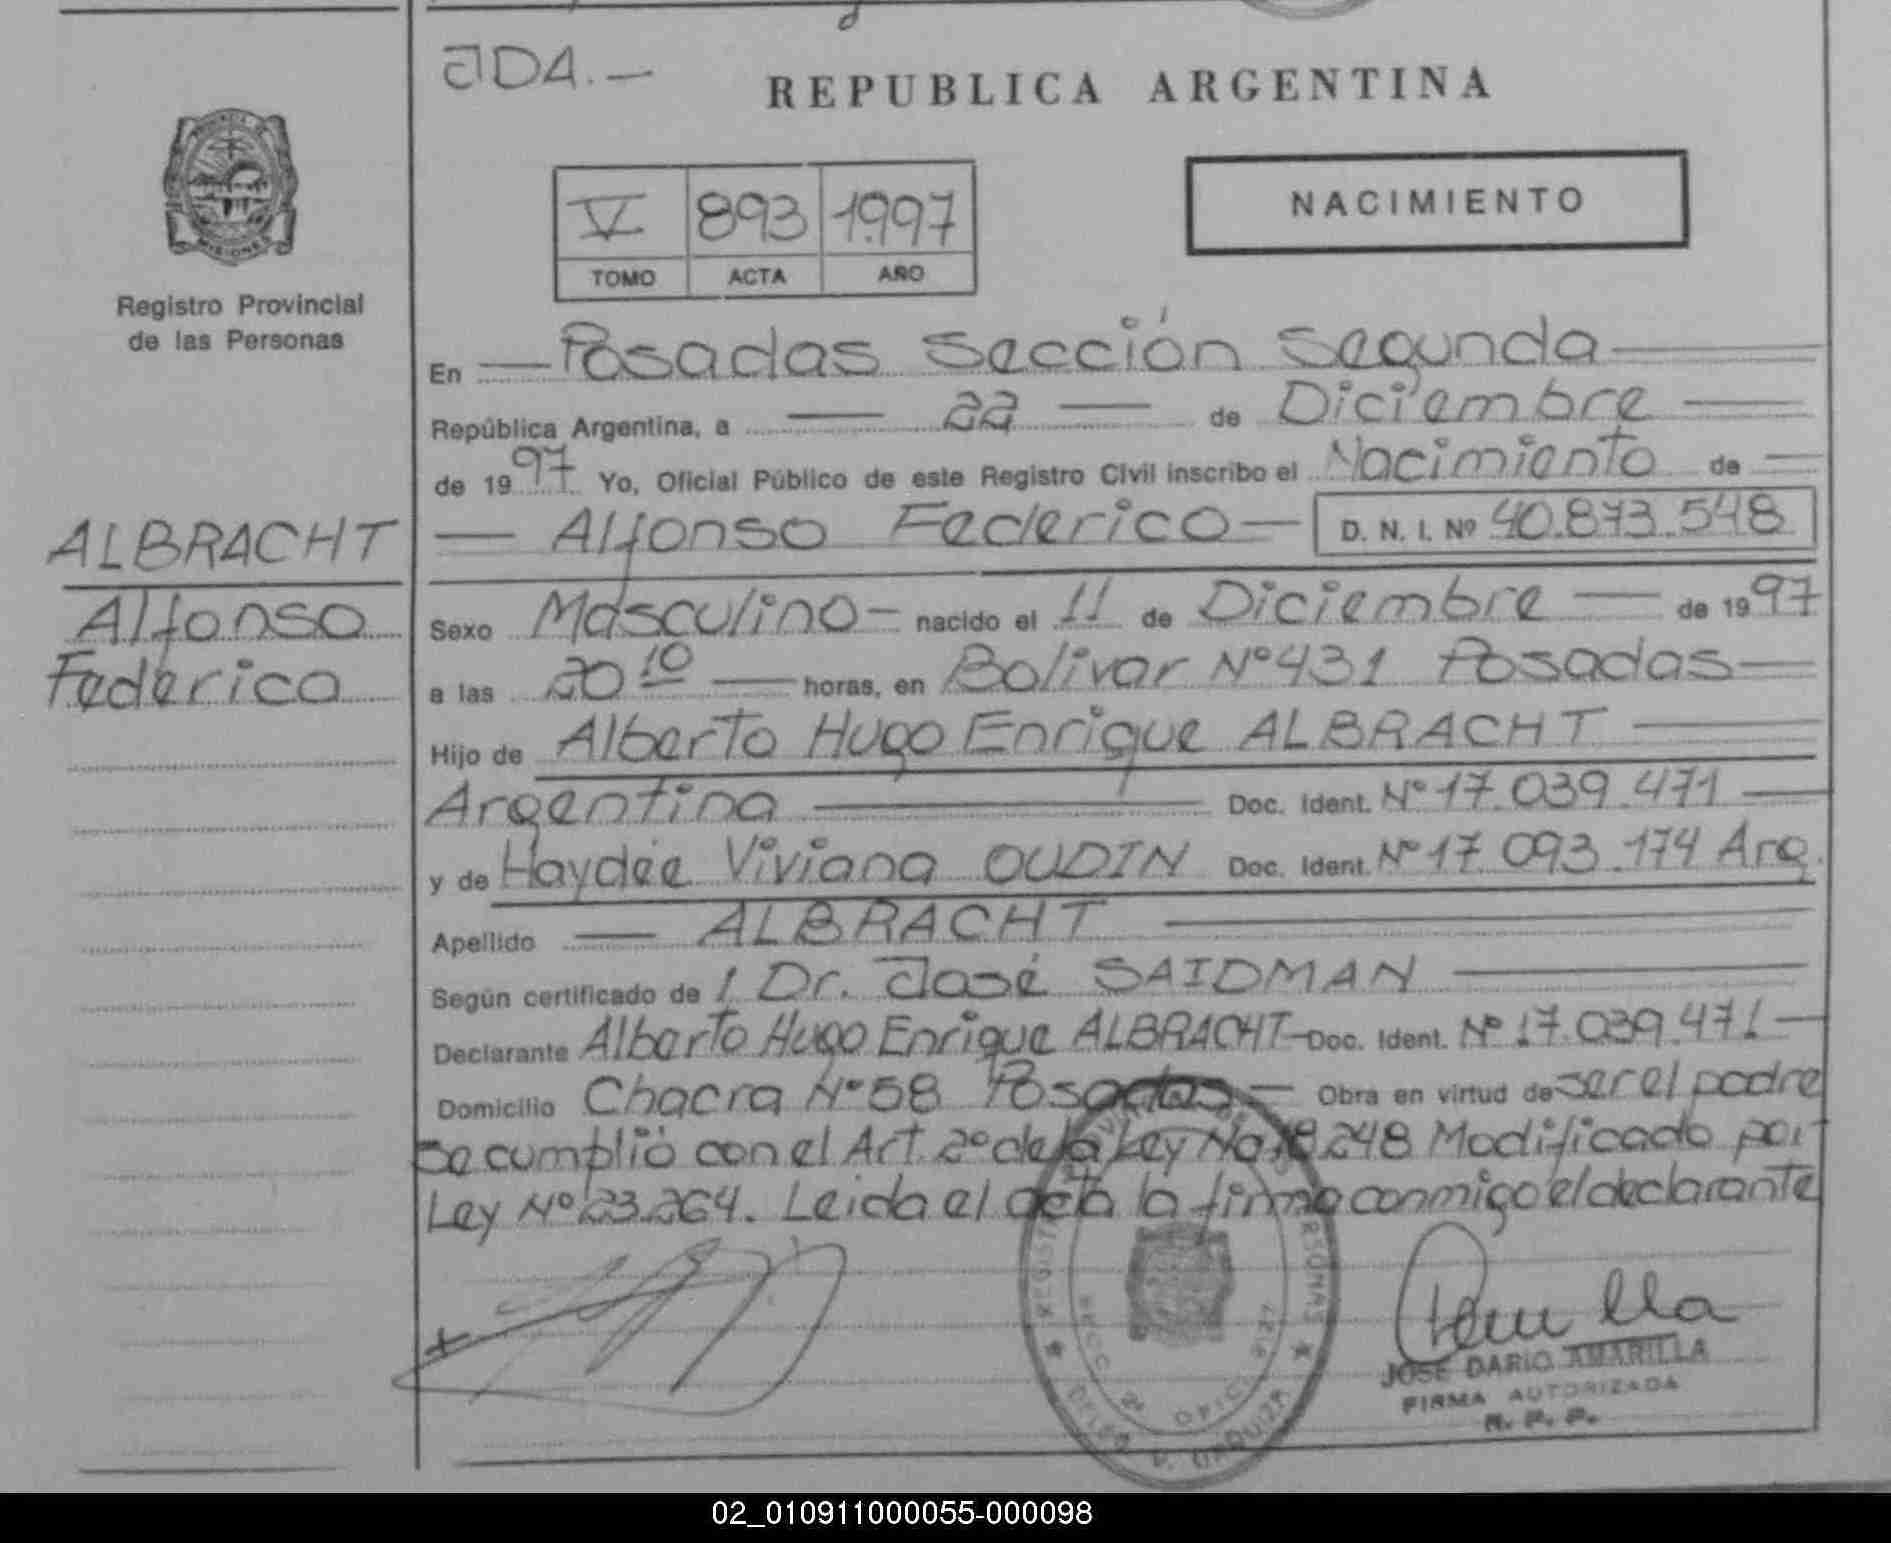 JDA.—
REPUBLICA ARGENTINA
MISIONES
Registro Provincial
de las Personas
V 893 1997
TOMO ACTA AÑO
NACIMIENTO
En — Posadas Sección Segunda —
República Argentina, a — 22 — de Diciembre —
de 1997 Yo, Oficial Público de este Registro Civil inscribo el Nacimiento de —
— Alfonso Federico — D. N. I. Nº 40.873.548
ALBRACHT
Alfonso
Federico
Sexo Masculino — nacido el 11 de Diciembre — de 1997
a las 20 10 — horas, en Bolivar Nº 431 Posadas —
Hijo de Alberto Hugo Enrique ALBRACHT —
Argentina — Doc. Ident. Nº 17.039.471 —
y de Haydée Viviana OUDIN Doc. Ident. Nº 17.093.174 Arg.
Apellido — ALBRACHT —
Según certificado de l Dr. José SAIDMAN —
Declarante Alberto Hugo Enrique ALBRACHT — Doc. Ident. Nº 17.039.471 —
Domicilio Chacra Nº 58 Posadas — Obra en virtud de ser el padre
Se cumplió con el Art. 2º de la Ley No 18.248 Modificado por
Ley Nº 23.264. Leida el acta la firma conmigo el declarante
JOSE DARIO AMARILLA
FIRMA AUTORIZADA
R. P. P.
02_010911000055-000098